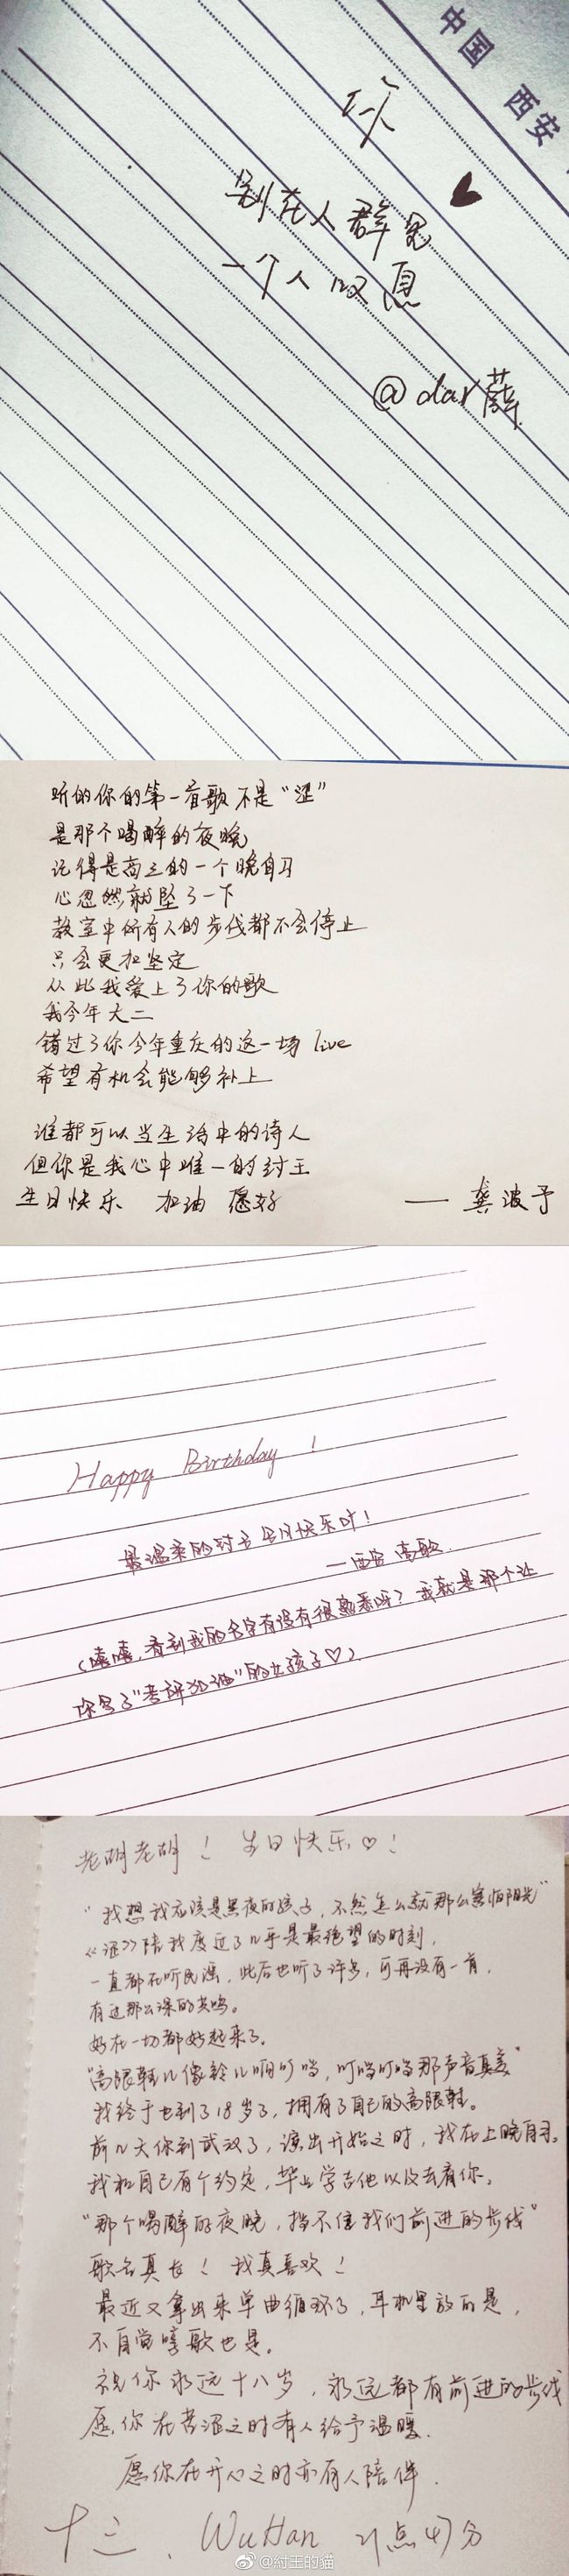 中国 西安
别在人群里
一个人叹息
@dar薛
听的你的第一首歌不是“涩”
是那个喝醉的夜晚
记得是高三的一个晚自习
心忽然就坠了一下
教室中所有人的步伐都不会停止
只会更加坚定
从此我爱上了你的歌
我今年大二
错过了你今年重庆的这一场 live
希望有机会能够补上
谁都可以当生活中的诗人
但你是我心中唯一的纣王
生日快乐 加油 愿好 —— 龚波予
Happy Birthday !
最温柔的纣王 生日快乐吖!
— 西安 高歌.
(嘻嘻,看到我的名字有没有很熟悉呀? 我就是那个让
你写了“考研加油”的女孩子♡)
老胡老胡! 生日快乐♡!
“我想我应该是黑夜的孩子,不然怎么就那么害怕阳光”
《涩》陪我度过了几乎是最绝望的时刻,
一直都在听民谣,此后也听了许多,可再没有一首,
有过那么深的共鸣。
好在一切都好起来了。
“高跟鞋儿像铃儿响叮当,叮当叮当那声音真美”
我终于也到了18岁了,拥有了自己的高跟鞋。
前几天你到武汉了,演出开始之时,我在上晚自习。
我和自己有个约定,毕业学吉他以及去看你。
“那个喝醉的夜晚,挡不住我们前进的步伐”
歌名真长! 我真喜欢!
最近又拿出来单曲循环了,耳机里放的是,
不自觉哼歌也是。
祝你永远十八岁,永远都有前进的步伐
愿你在苦涩之时有人给予温暖.
愿你在开心之时亦有人陪伴.
十三、WuHan 21点47分
@紂王的貓